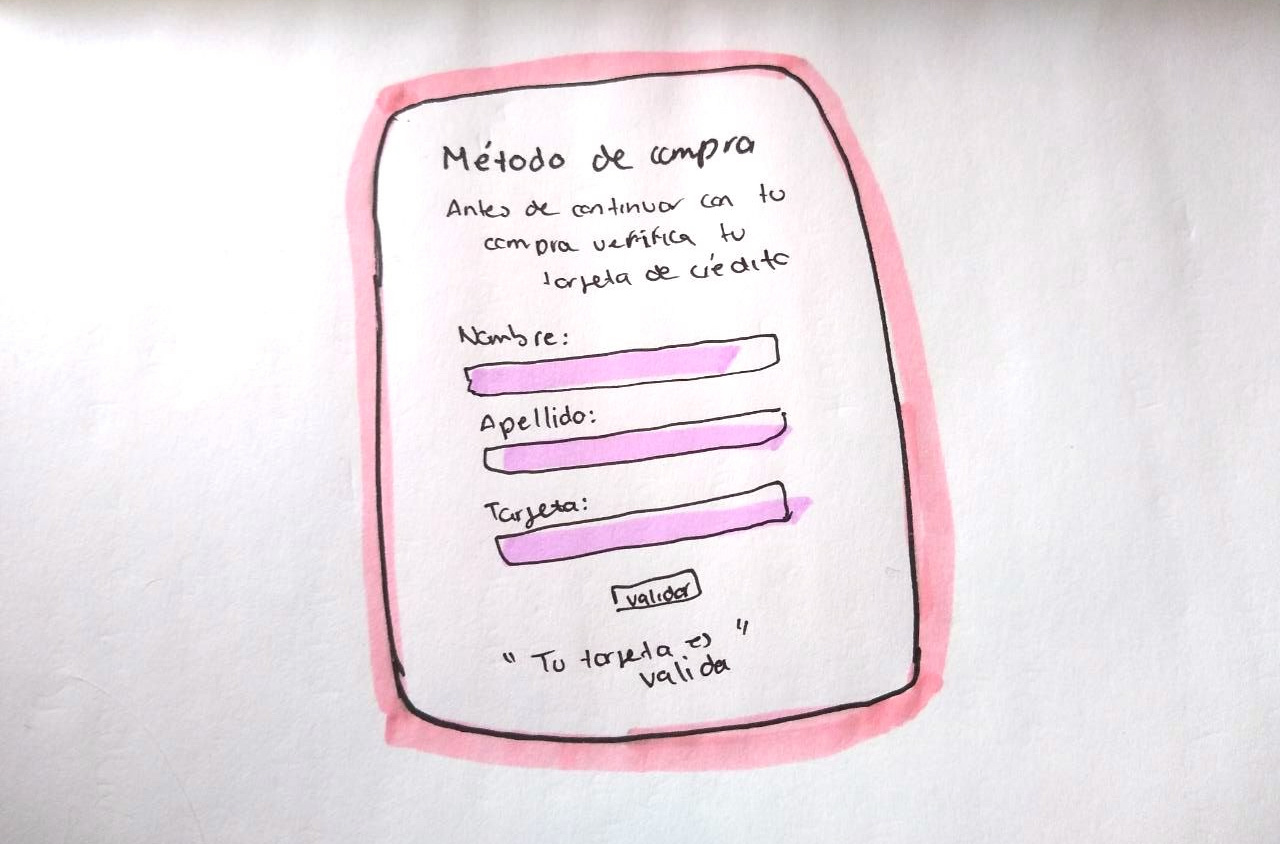 Método de compra
Antes de continuar con tu
compra verifica tu
tarjeta de crédito
Nombre:
Apellido:
Tarjeta:
validar
"Tu tarjeta es"
valida